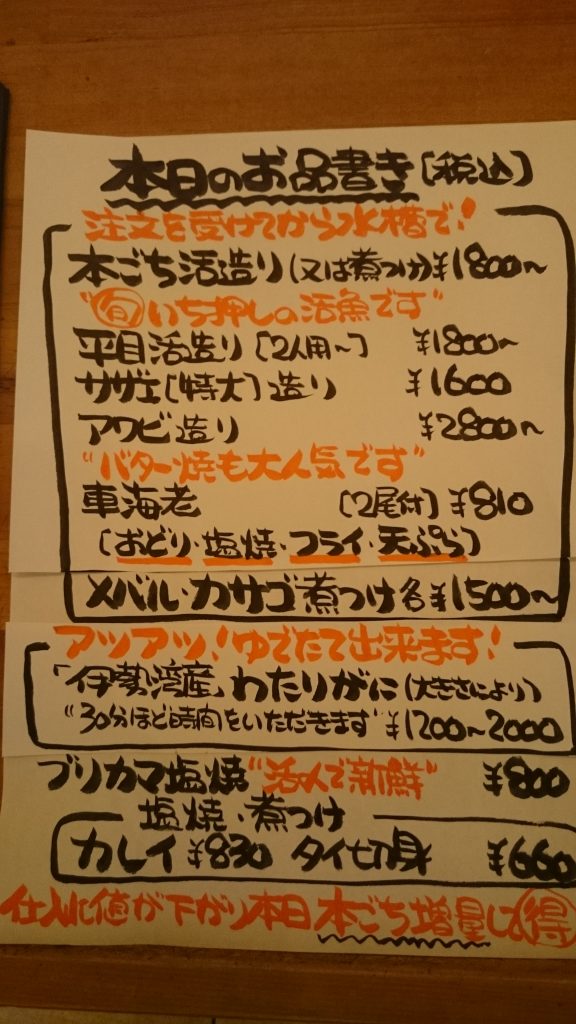 本日のお品書き[税込]
注文を受けてから水槽で!
本ごち活造り(又は煮つけ)¥1800〜
"旬いち押しの活魚です"
平目活造り[2人用〜] ¥1800〜
サザエ[特大]造り ¥1600
アワビ造り ¥2800〜
"バター焼も大人気です"
車海老 [2尾付]¥810
[おどり・塩焼・フライ・天ぷら]
メバル・カサゴ煮つけ各¥1500〜
アツアツ!ゆでたて出来ます!
「伊勢湾産」わたりがに(大きさにより)
"30分ほど時間をいただきます"¥1200〜2000
ブリカマ塩焼"活〆で新鮮" ¥800
塩焼・煮つけ
カレイ¥830 タイ切身 ¥660
仕入れ値が下がり本日本ごち増量し㊝得